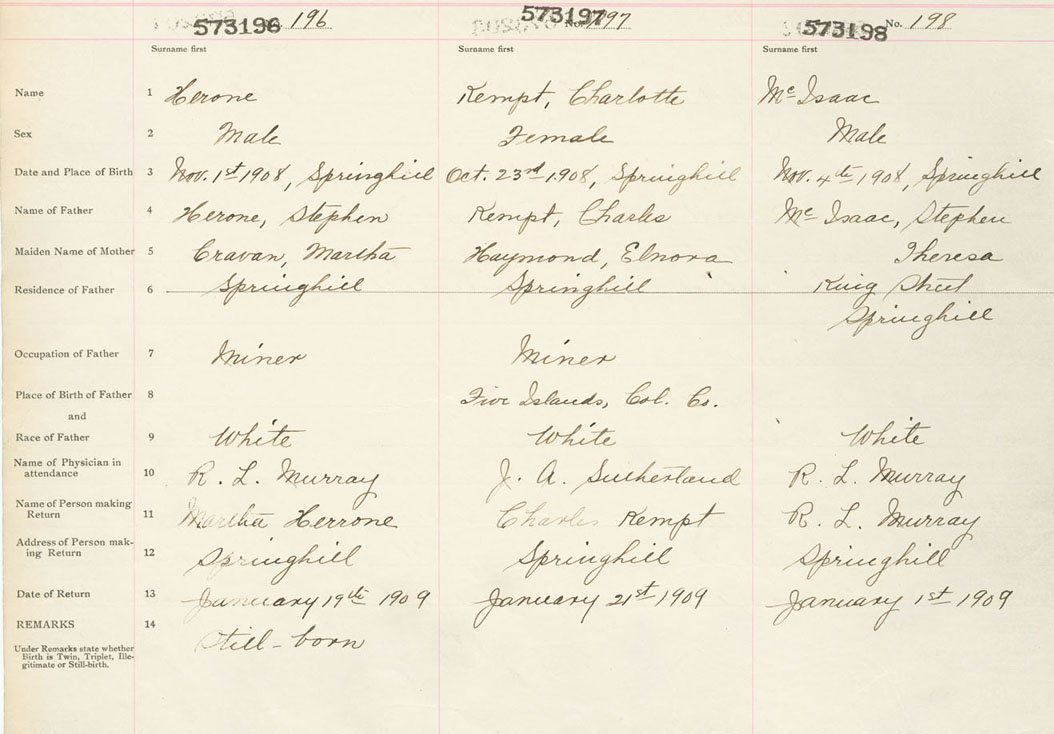 573196 196 573197 No. 197 573198 No. 198
Surname first Surname first Surname first
Name 1 Herone Kempt, Charlotte Mc Isaac
Sex 2 Male Female Male
Date and Place of Birth 3 Nov. 1st 1908, Springhill Oct. 23rd 1908, Springhill Nov. 4th 1908, Springhill
Name of Father 4 Herone, Stephen Kempt, Charles Mc Isaac, Stephen
Maiden Name of Mother 5 Cravan, Martha Haymond, Elnora Theresa
Residence of Father 6 Springhill Springhill King Street
Springhill
Occupation of Father 7 Miner Miner
Place of Birth of Father 8 Five Islands, Col. Co.
and
Race of Father 9 White White White
Name of Physician in
attendance 10 R. L. Murray J. A. Sutherland R. L. Murray
Name of Person making
Return 11 Martha Herrone Charles Kempt R. L. Murray
Address of Person mak-
ing Return 12 Springhill Springhill Springhill
Date of Return 13 January 19th 1909 January 21st 1909 January 1st 1909
REMARKS 14 Still-born
Under Remarks state whether
Birth is Twin, Triplet, Ille-
gitimate or Still-birth.